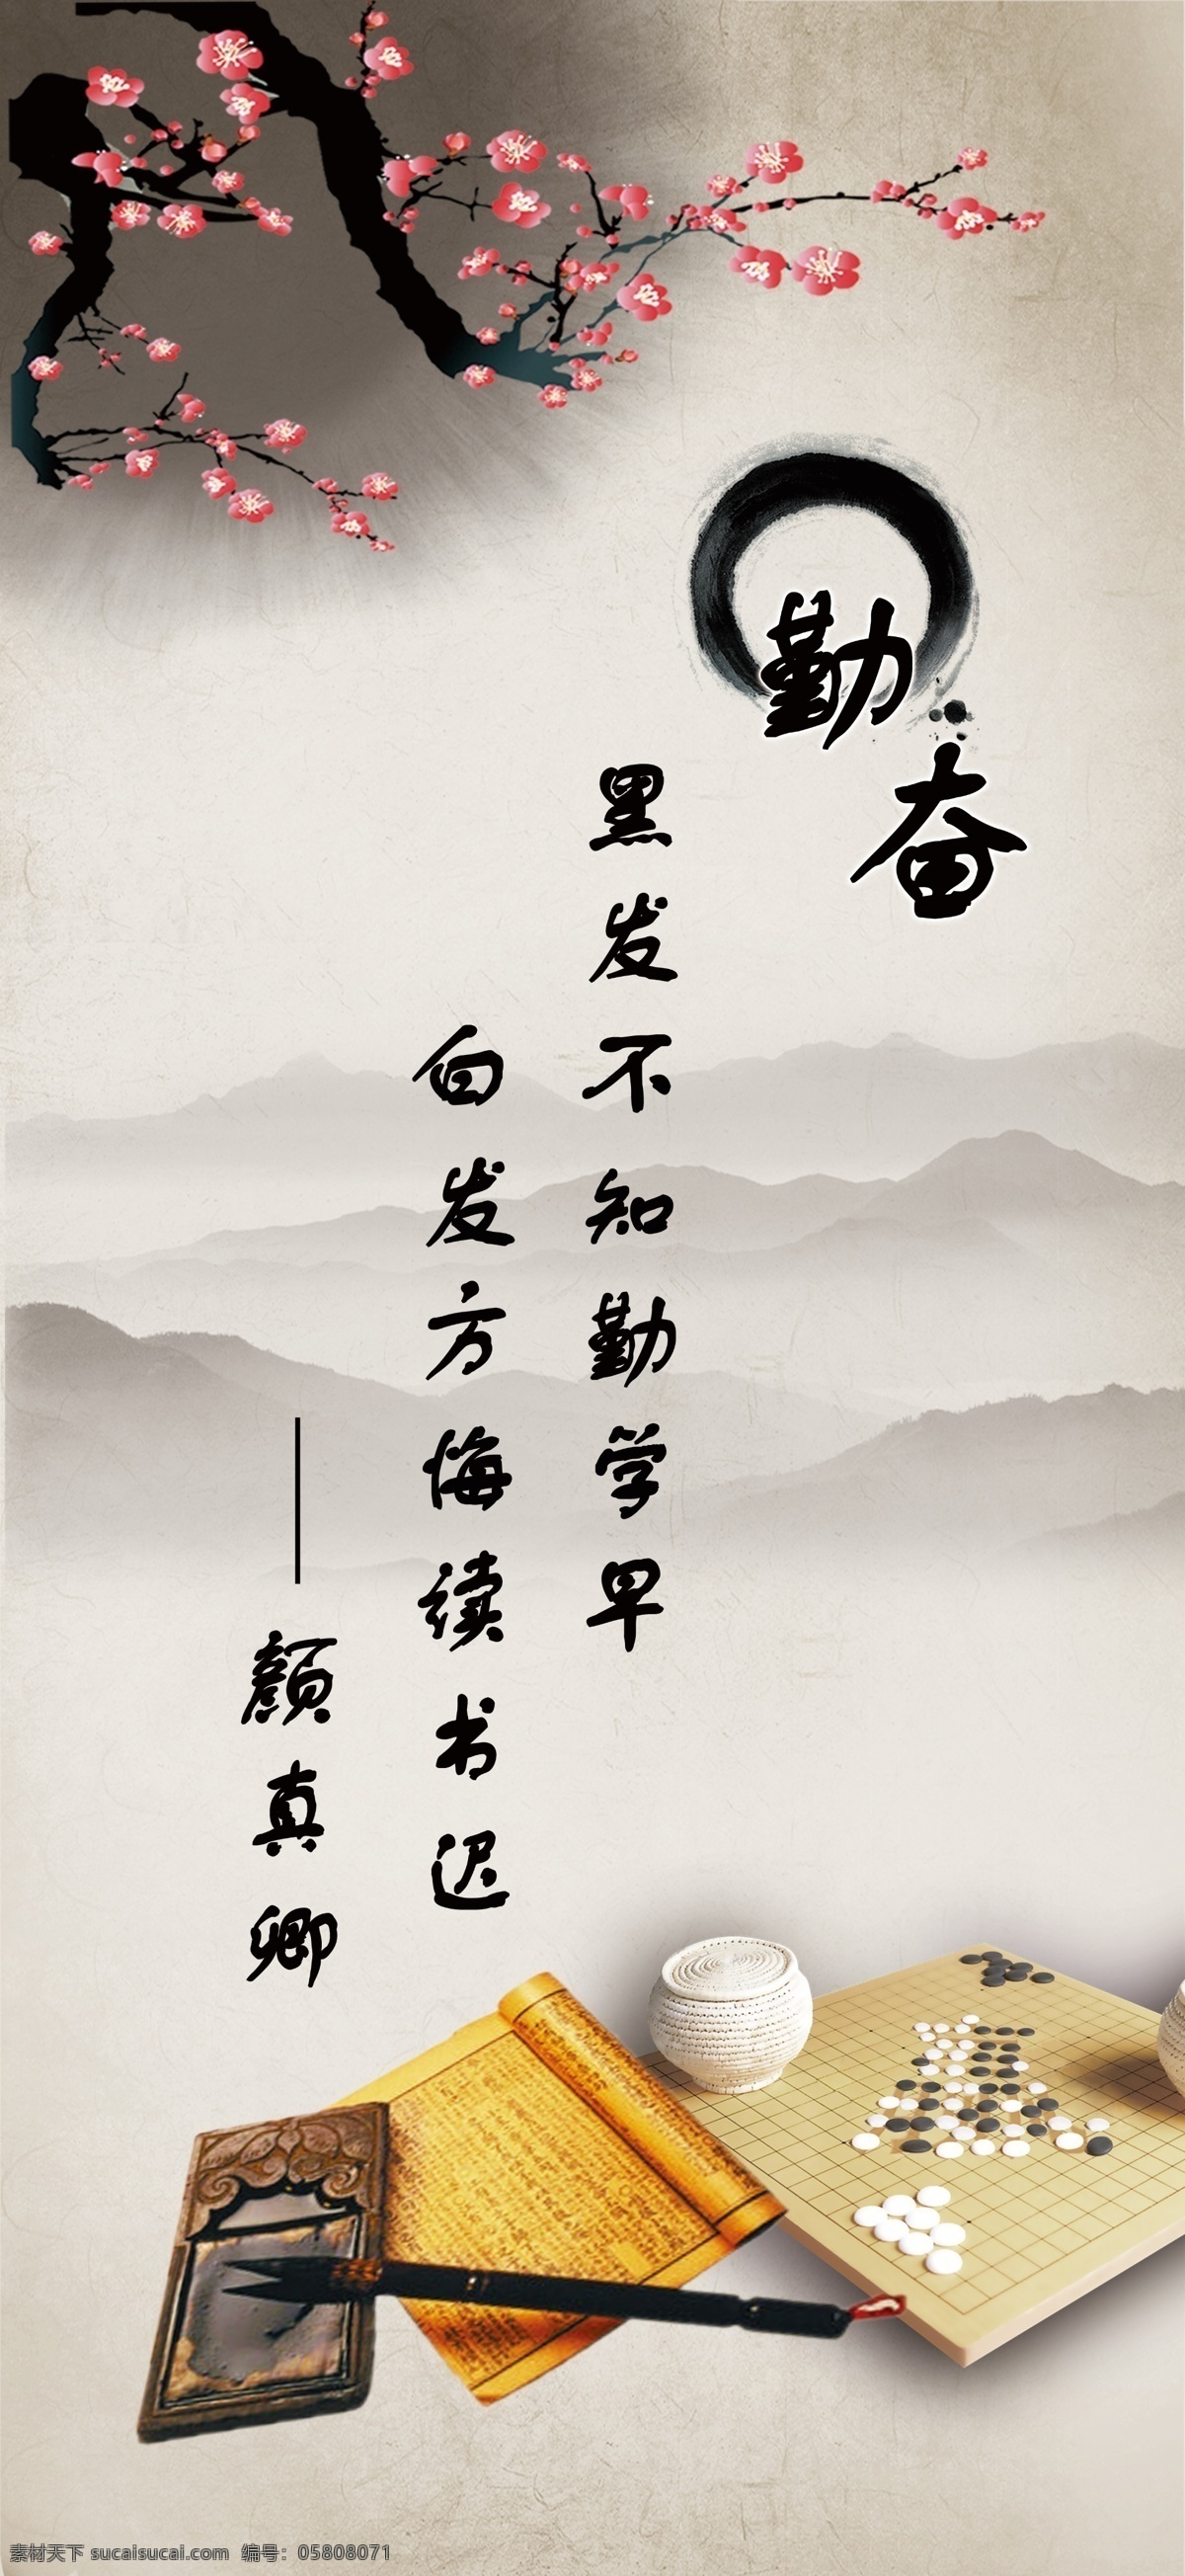 勤奋
黑发不知勤学早
白发方悔读书迟
——颜真卿
素材天下 sucaisucai.com 编号：05808071